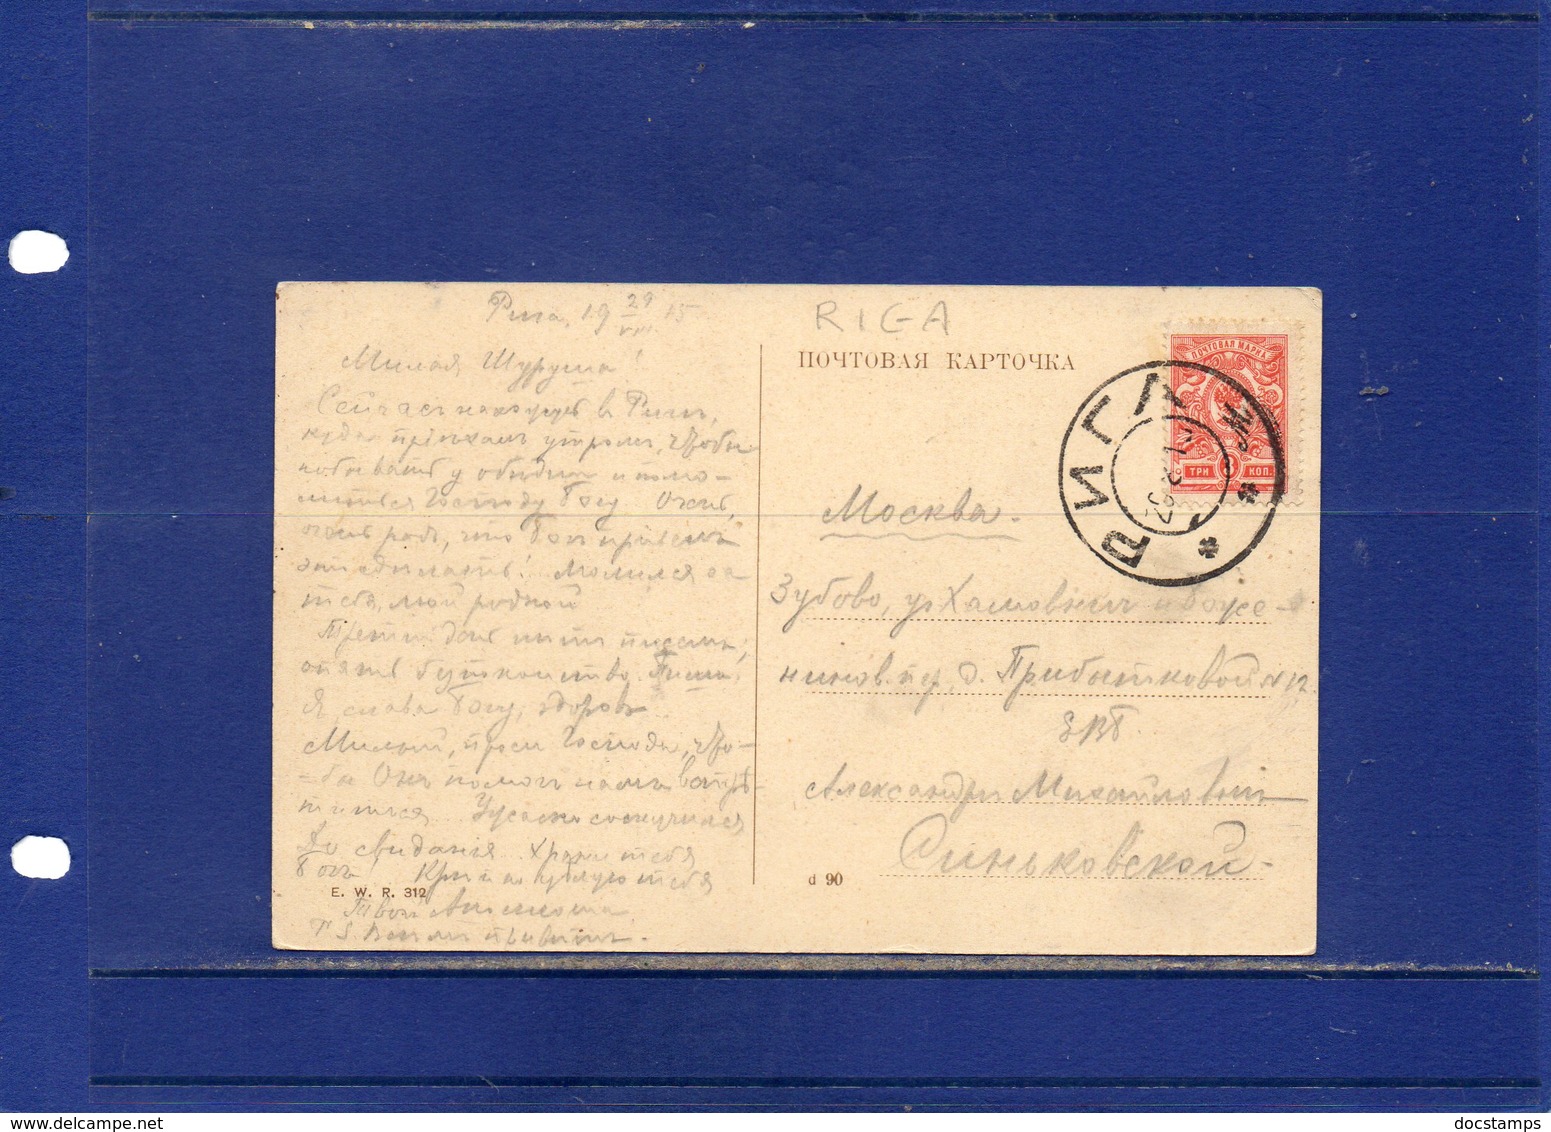 Рига, 19 29/VIII 15
Милая Шуруша!
Сейчас нахожусь в Риге,
куда приехал утром, чтобы
побывать у обедни и помо-
литься Господу Богу. Очень,
очень рад, что Бог привел
это сделать! Молился за
тебя, мой родной
Третий день нет писем,
опять беспокойство. Пиши.
Я, слава Богу, здоров.
Милый, проси Господа, что-
-бы Он помог нам встре-
титься. Ужасно соскучился
До свидания. Храни тебя
Бог! Крепко целую тебя
Твой
P.S. Всем привет.
E. W. R. 312
RIGA
ПОЧТОВАЯ КАРТОЧКА
ПОЧТОВАЯ МАРКА
ТРИ 3 КОП.
РИГА
Москва.
Зубово, уг Хамовнич. и Боже-
нинов. пер. д. Прибытковой № 12.
ЕВБ
Александре Михайловне
Синьковской
d 90
docstamps